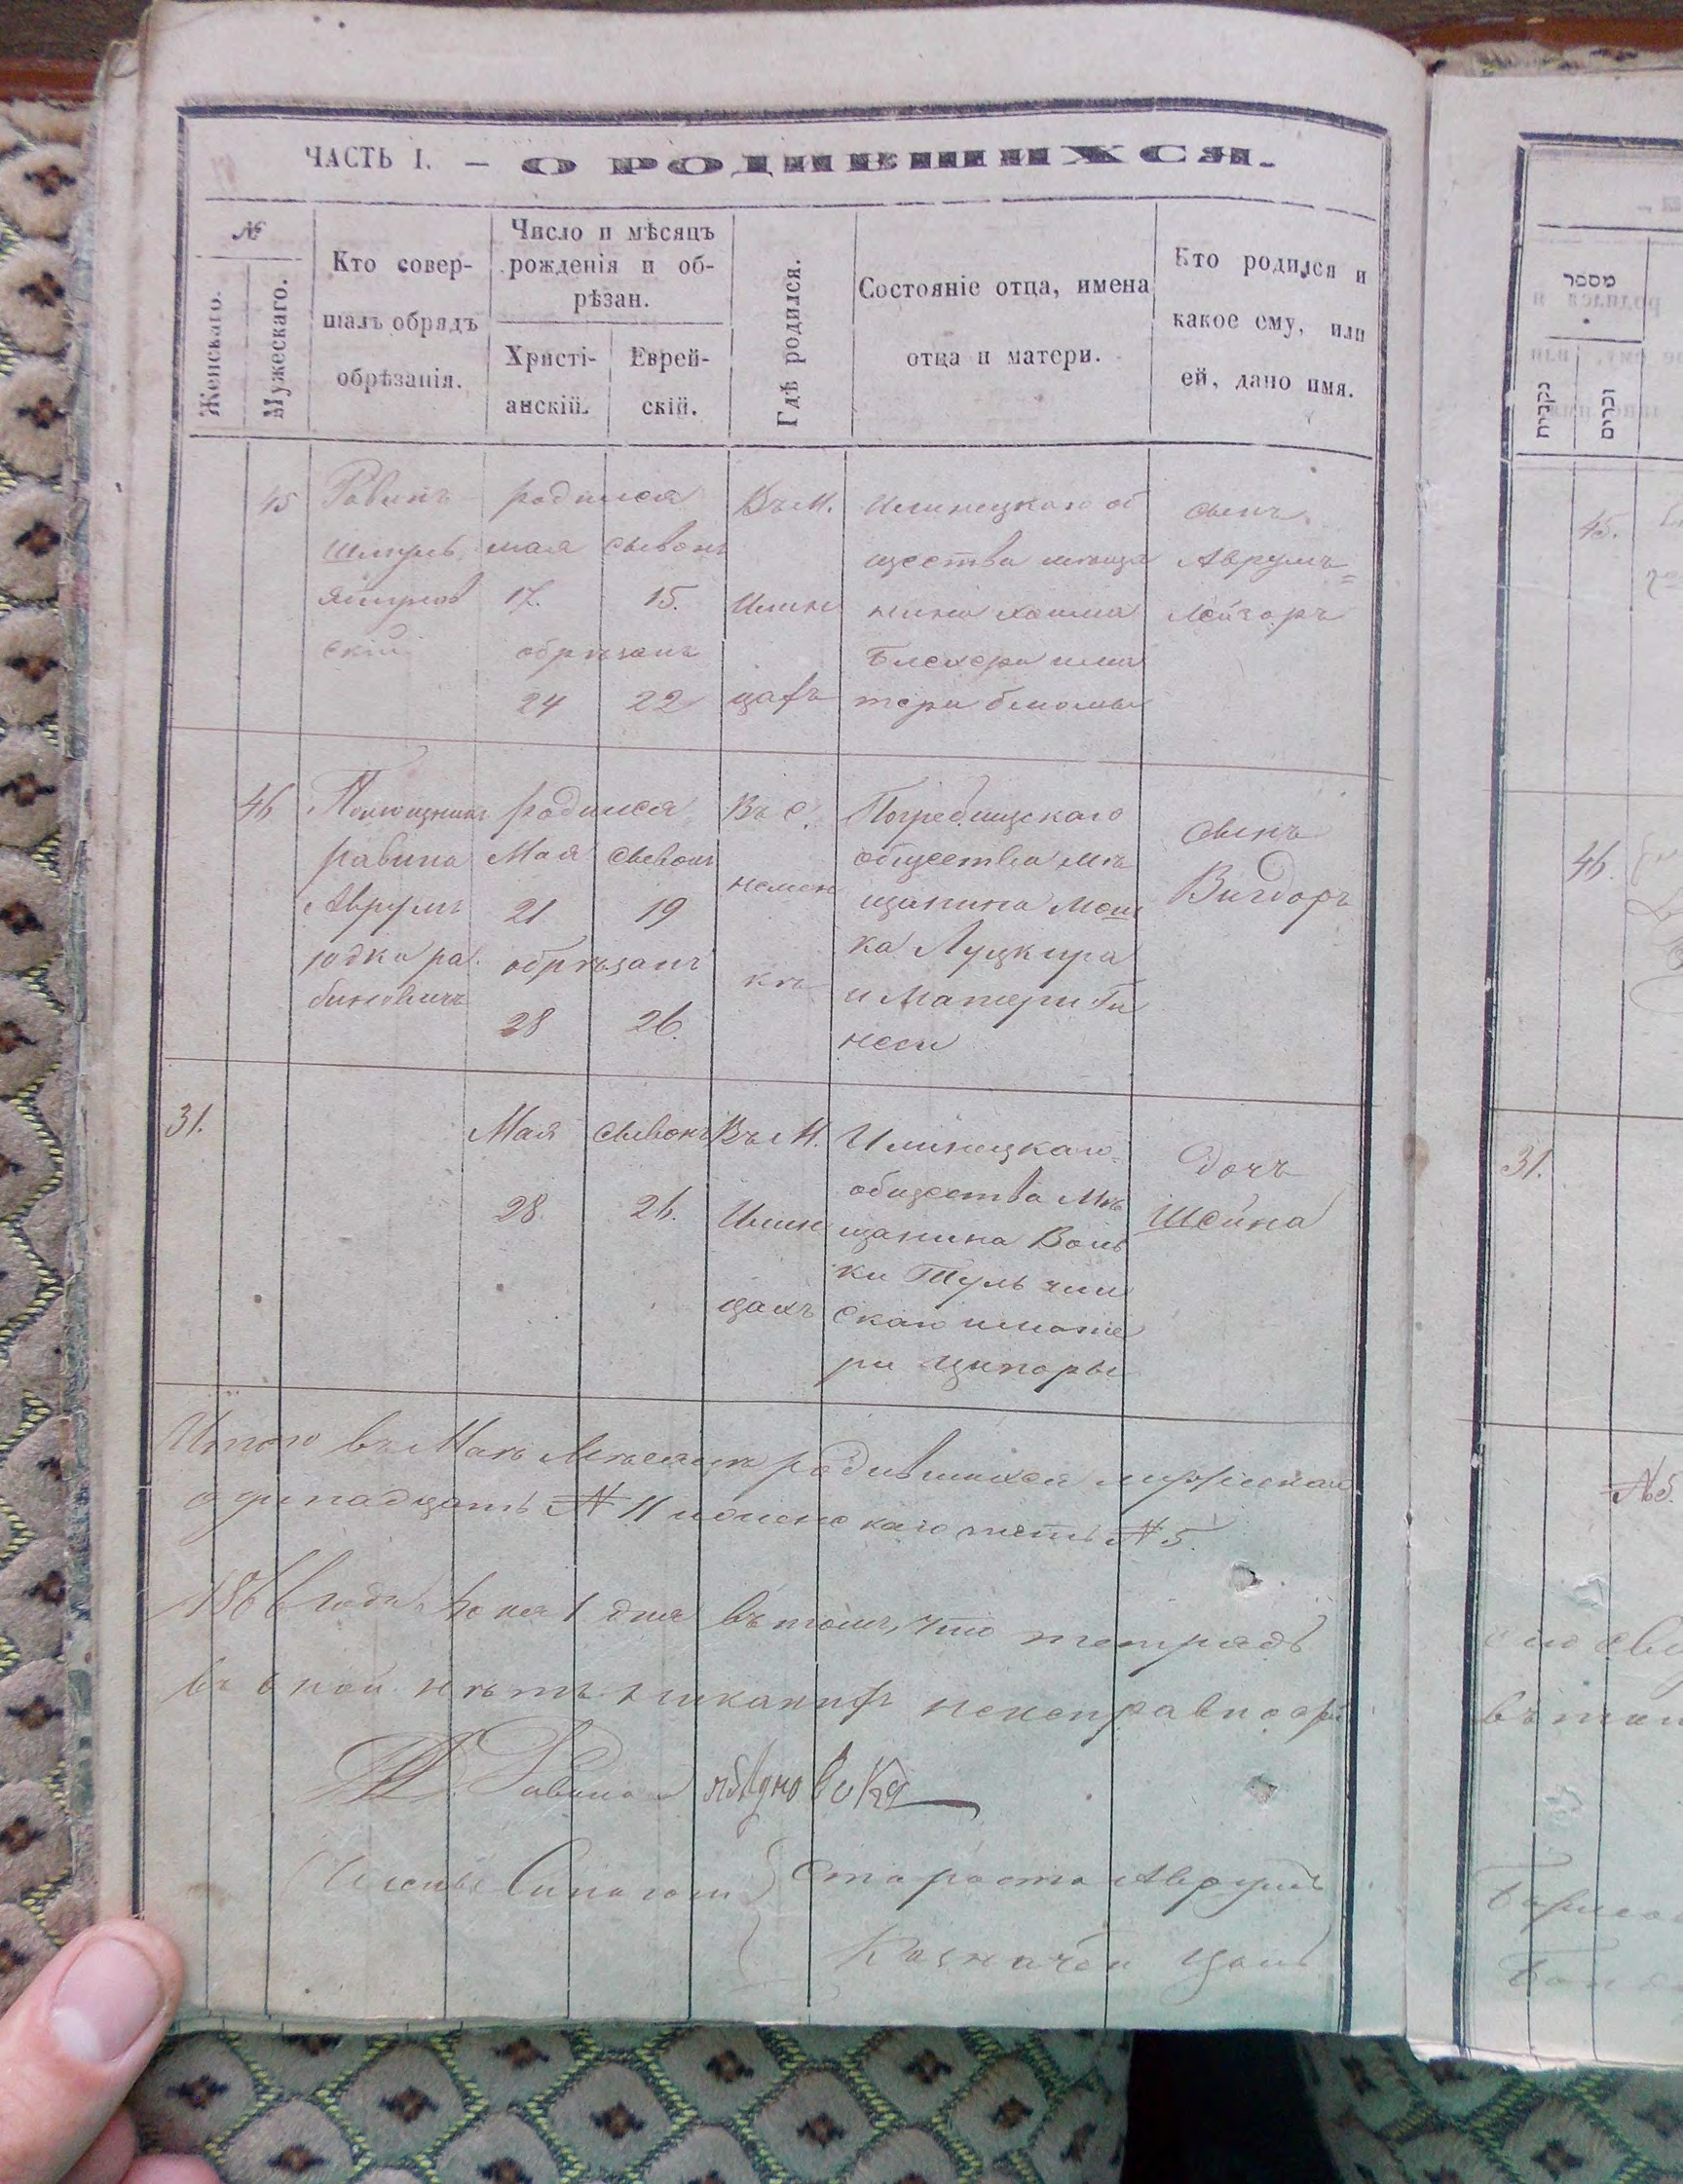 ЧАСТЬ I. — О РОДИВШИХСЯ.
№
Женскаго.
Мужескаго.
Кто совер-
шалъ обрядъ
обрѣзанія.
Число и мѣсяцъ
рожденія и об-
рѣзан.
Христі-
анскій.
Еврей-
скій.
Гдѣ родился.
Состояніе отца, имена
отца и матери.
Кто родился и
какое ему, или
ей, дано имя.
45
Равинъ
Шмуль
скій
родился
мая сывонъ
17. 15.
обрѣзанъ
24 22
Въ М.
Илин
цахъ
Илинецкаго об
щества мѣща
нина Хаима
Блехера и ма
тери Блюмы
сынъ
Аврумъ=
Лейзоръ
46
Помощникъ
равина
Аврумъ
Юдко ра
биновичъ
родился
Мая сывонъ
21 19
обрѣзанъ
28 26.
Въ С.
немен
къ
Погребищскаго
общества мѣ
щанина Мош
ка Луцкира
и Матери Ги
неси
Сынъ
Вигдоръ
31.
Мая сывонъ
28. 26.
Въ М.
Илин
цахъ
Илинецкаго
общества Мѣ
щанина Воль
ки Тульчин
скаго и мате
ри Ципоры
Дочь
Шейна
Итого въ Маѣ Мѣсяцѣ родившихся мужескаго
одинадцать № 11 и женскаго пять № 5.
1866 года Июня 1 дня въ томъ, что тетрадь
въ оной нѣтъ никакихъ неисправностей
Равина
Члены Синагоги } Староста Аврумъ
Казначей
מספר
נקבות
זכרים
45.
46.
31.
№ 5.